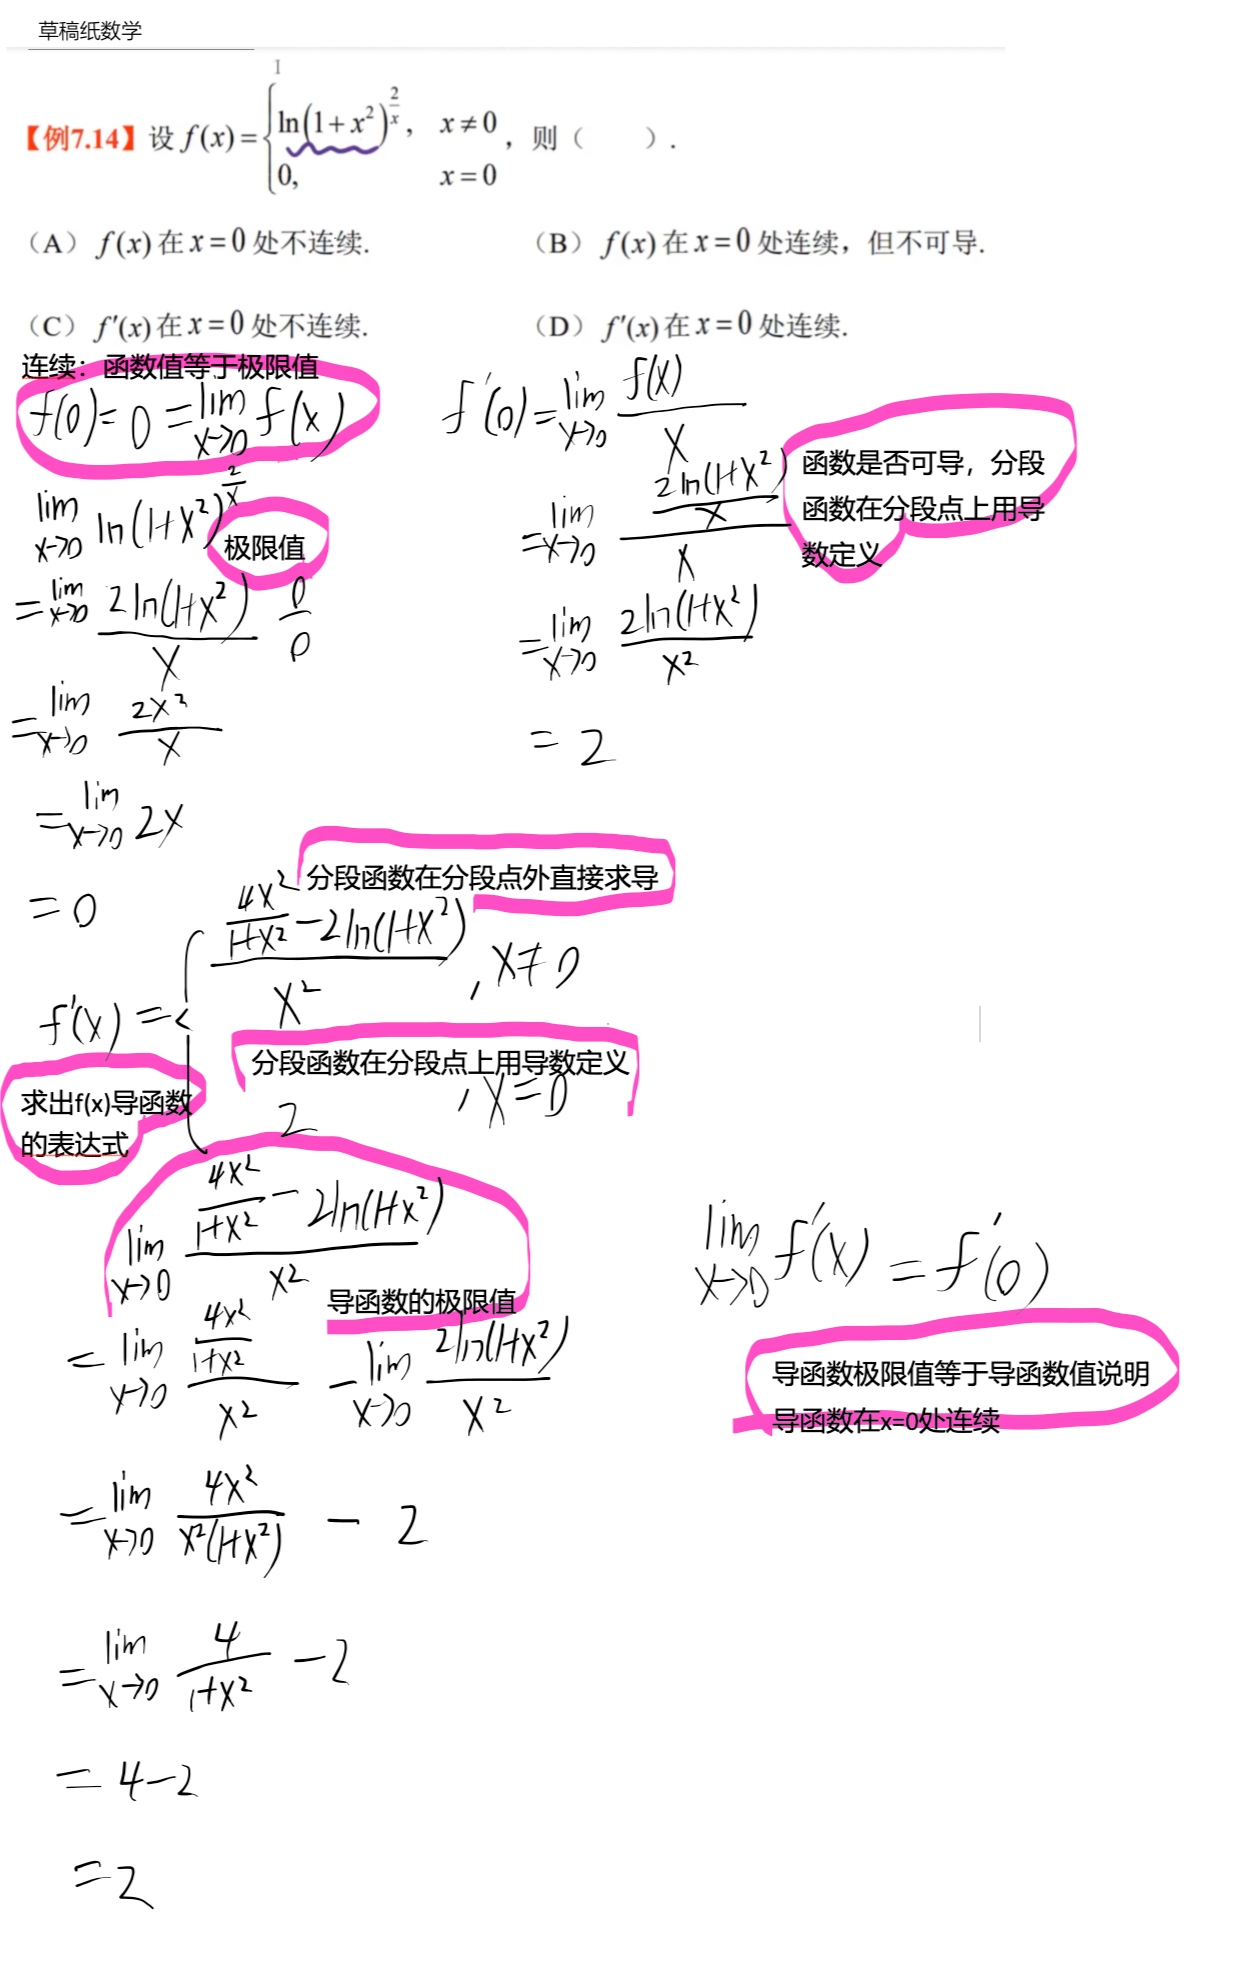 草稿纸数学
【例7.14】设 f(x) = { ln(1+x²)^(2/x), x≠0
0, x=0 , 则（ ）.
（A） f(x) 在 x=0 处不连续. （B） f(x) 在 x=0 处连续，但不可导.
（C） f′(x) 在 x=0 处不连续. （D） f′(x) 在 x=0 处连续.
连续：函数值等于极限值
f(0)=0=lim x→0 f(x)
lim x→0 ln(1+x²)^(2/x)
极限值
=lim x→0 2ln(1+x²)/x 0/0
=lim x→0 2x²/x
=lim x→0 2x
=0
f′(0)=lim x→0 f(x)/x
=lim x→0 (2ln(1+x²)/x)/x
函数是否可导，分段
函数在分段点上用导
数定义
=lim x→0 2ln(1+x²)/x²
=2
分段函数在分段点外直接求导
f′(x)={ (4x²/(1+x²)-2ln(1+x²))/x² , x≠0
分段函数在分段点上用导数定义
2 , x=0
求出f(x)导函数
的表达式
lim x→0 (4x²/(1+x²)-2ln(1+x²))/x²
导函数的极限值
=lim x→0 (4x²/(1+x²))/x² - lim x→0 2ln(1+x²)/x²
=lim x→0 4x²/(x²(1+x²)) - 2
=lim x→0 4/(1+x²) -2
=4-2
=2
lim x→0 f′(x)=f′(0)
导函数极限值等于导函数值说明
导函数在x=0处连续